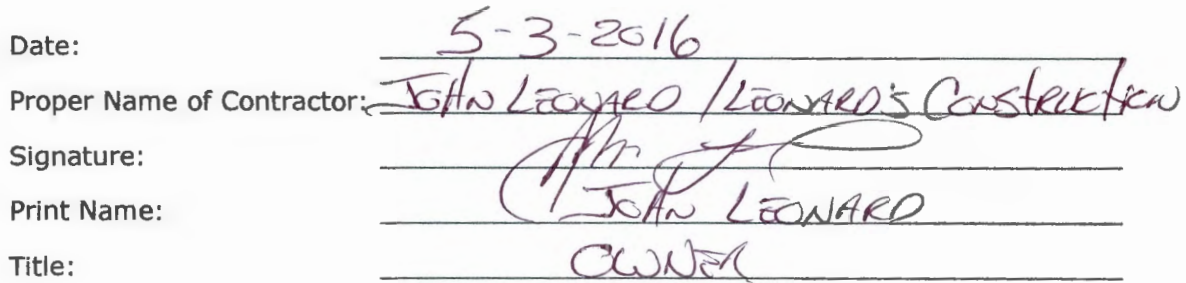 Date: 5-3-2016
Proper Name of Contractor: JOHN LEONARD / LEONARD'S CONSTRUCTION
Signature:
Print Name: JOHN LEONARD
Title: OWNER